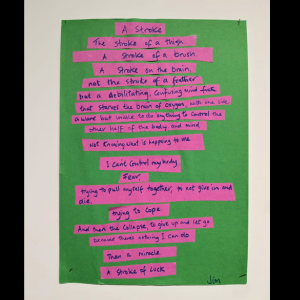 A Stroke
The stroke of a thigh
A stroke of a brush
A stroke on the brain,
not the stroke of a feather
but a debilitating, confusing mind fuck
that starves the brain of oxygen, with one side
aware but unable to do anything to control the
other half of the body and mind
Not Knowing what is happening to me
I can't control my body
Fear,
trying to pull myself together, to not give in and
die.
trying to cope
And then the collapse, to give up and let go
because theres nothing I can do
Then a miracle
A stroke of luck
Jim